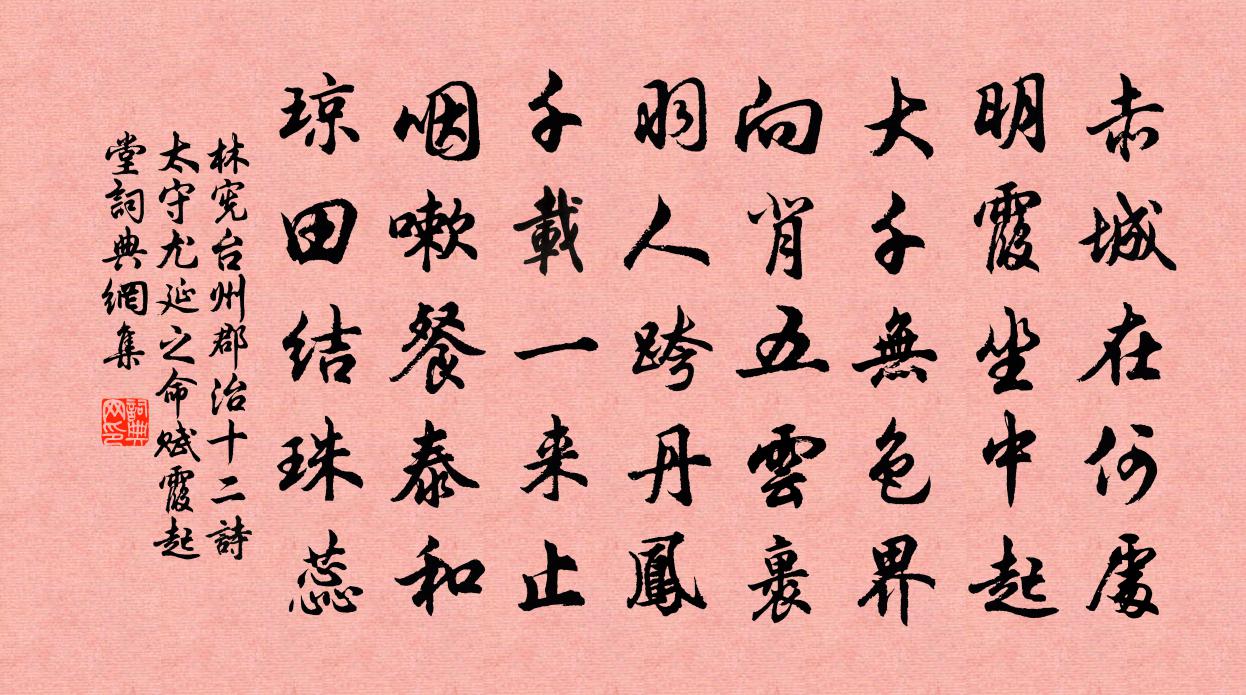 赤城在何處
明霞坐中起
大千無色界
向肖五雲裏
羽人跨丹鳳
千載一来止
咽嗽餐泰和
琼田结珠蕊
林宪台州郡治十二詩
太守尤延之命赋霞起
堂詞典網集
詞典网印